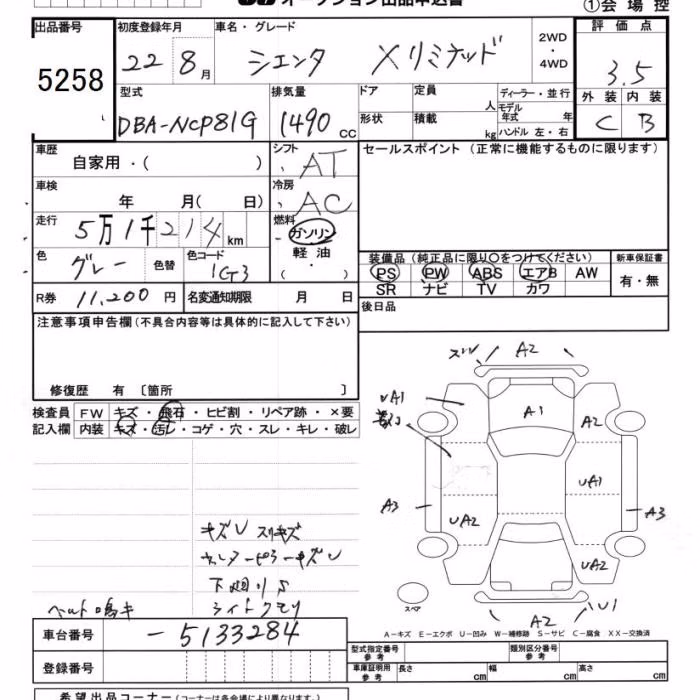 オークション出品申込書
①会場控
出品番号
5258
初度登録年月
22 8月
車名・グレード
シエンタ Xリミテッド
2WD
・
4WD
評価点
3.5
外装 内装
C B
型式
DBA-NCP81G
排気量
1490 cc
ドア
形状
定員 人
積載 kg
ディーラー・並行
モデル年式 年
ハンドル 左・右
車歴
自家用・( )
シフト
AT
セールスポイント (正常に機能するものに限ります)
車検
年 月( 日)
冷房
AC
走行
5万1千214km
燃料
ガソリン
・
軽油
( ・ )
色
グレー
色替
色コード
1G3
装備品 (純正品に限り○をつけてください)
PS PW ABS エアB AW
SR ナビ TV カワ
新車保証書
有・無
R券 11,200 円
名変通知期限 月 日
後日品
注意事項申告欄 (不具合内容等は具体的に記入して下さい)
修復歴 有 〔箇所 〕
検査員記入欄
FW キズ・飛石・ヒビ割・リペア跡・×要
内装 キズ・汚レ・コゲ・穴・スレ・キレ・破レ
A2
UA1
A1
A2
A3
UA1
A3
UA2
UA2
スペア
A2
U1
キズU スリキズ
センターピラーキズU
下廻りS
ベルト鳴キ
ライトクモリ
A-キズ E-エクボ U-凹み W-補修跡 S-サビ C-腐食 XX-交換済
車台番号
-5133284
登録番号
型式指定番号
参考
類別区分番号
参考
車庫証明用
参考
長さ cm
幅 cm
高さ cm
希望出品コーナー (コーナーは各会場により異なります。)